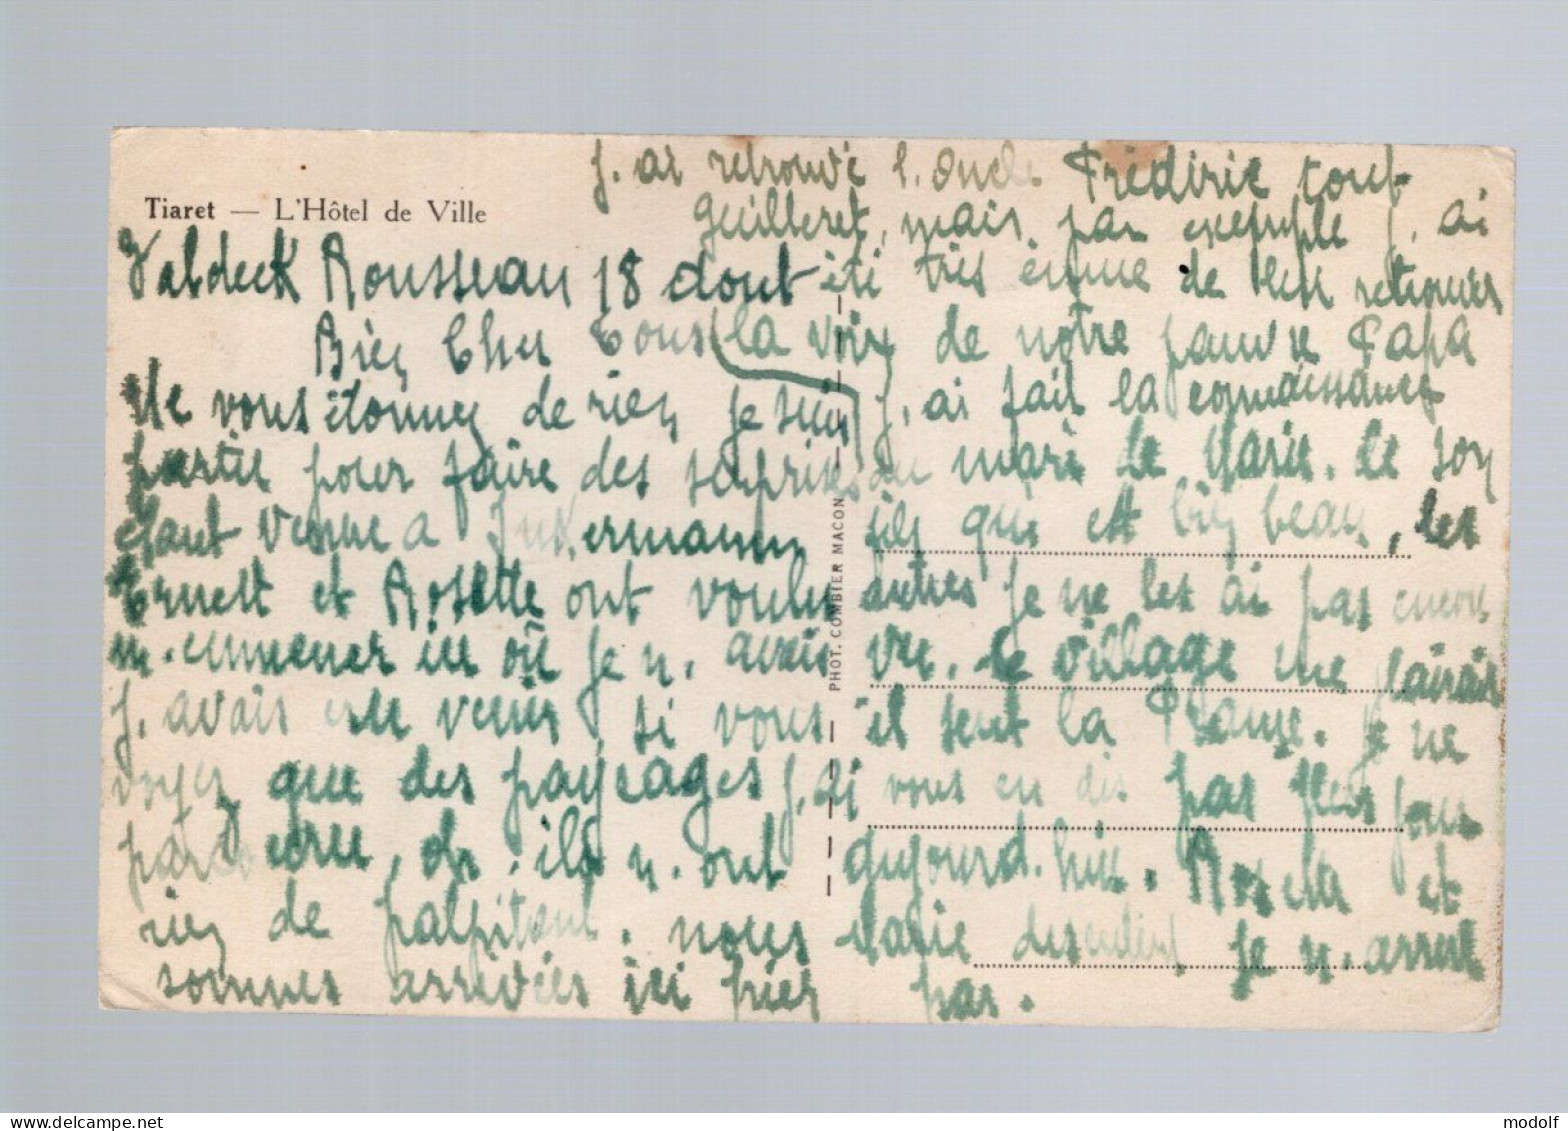 Tiaret — L'Hôtel de Ville
Valdeck Rousseau 18 dout
Bien Cher Tous
Ne vous étonnez de rien je suis
partie pour faire des surprises
étant venue a Inkermann
Ernest et Rosette ont voulu
m. emmener ici où je n. avais
J. avais venir si vous
voyez que des paysages J. ai
parcouru, or. ils n. ont
rien de palpitant. nous
sommes arrivées ici hier
J. ai retrouvé l. oncle Frédéric tout
guilleret, mais par exemple J. ai
été très émue de retrouver
la voix de notre pauvre Papa
J. ai fait la connaissance
du mari de Marie. de son
fils qui est bien beau, les
autres je ne les ai pas encore
vu. le village me plairait
il sent la France. Je ne
vous en dis pas plus pour
aujourd. hui. Rosette et
Marie descendent je n. arrête
pas.
PHOT. COMBIER MACON
modolf